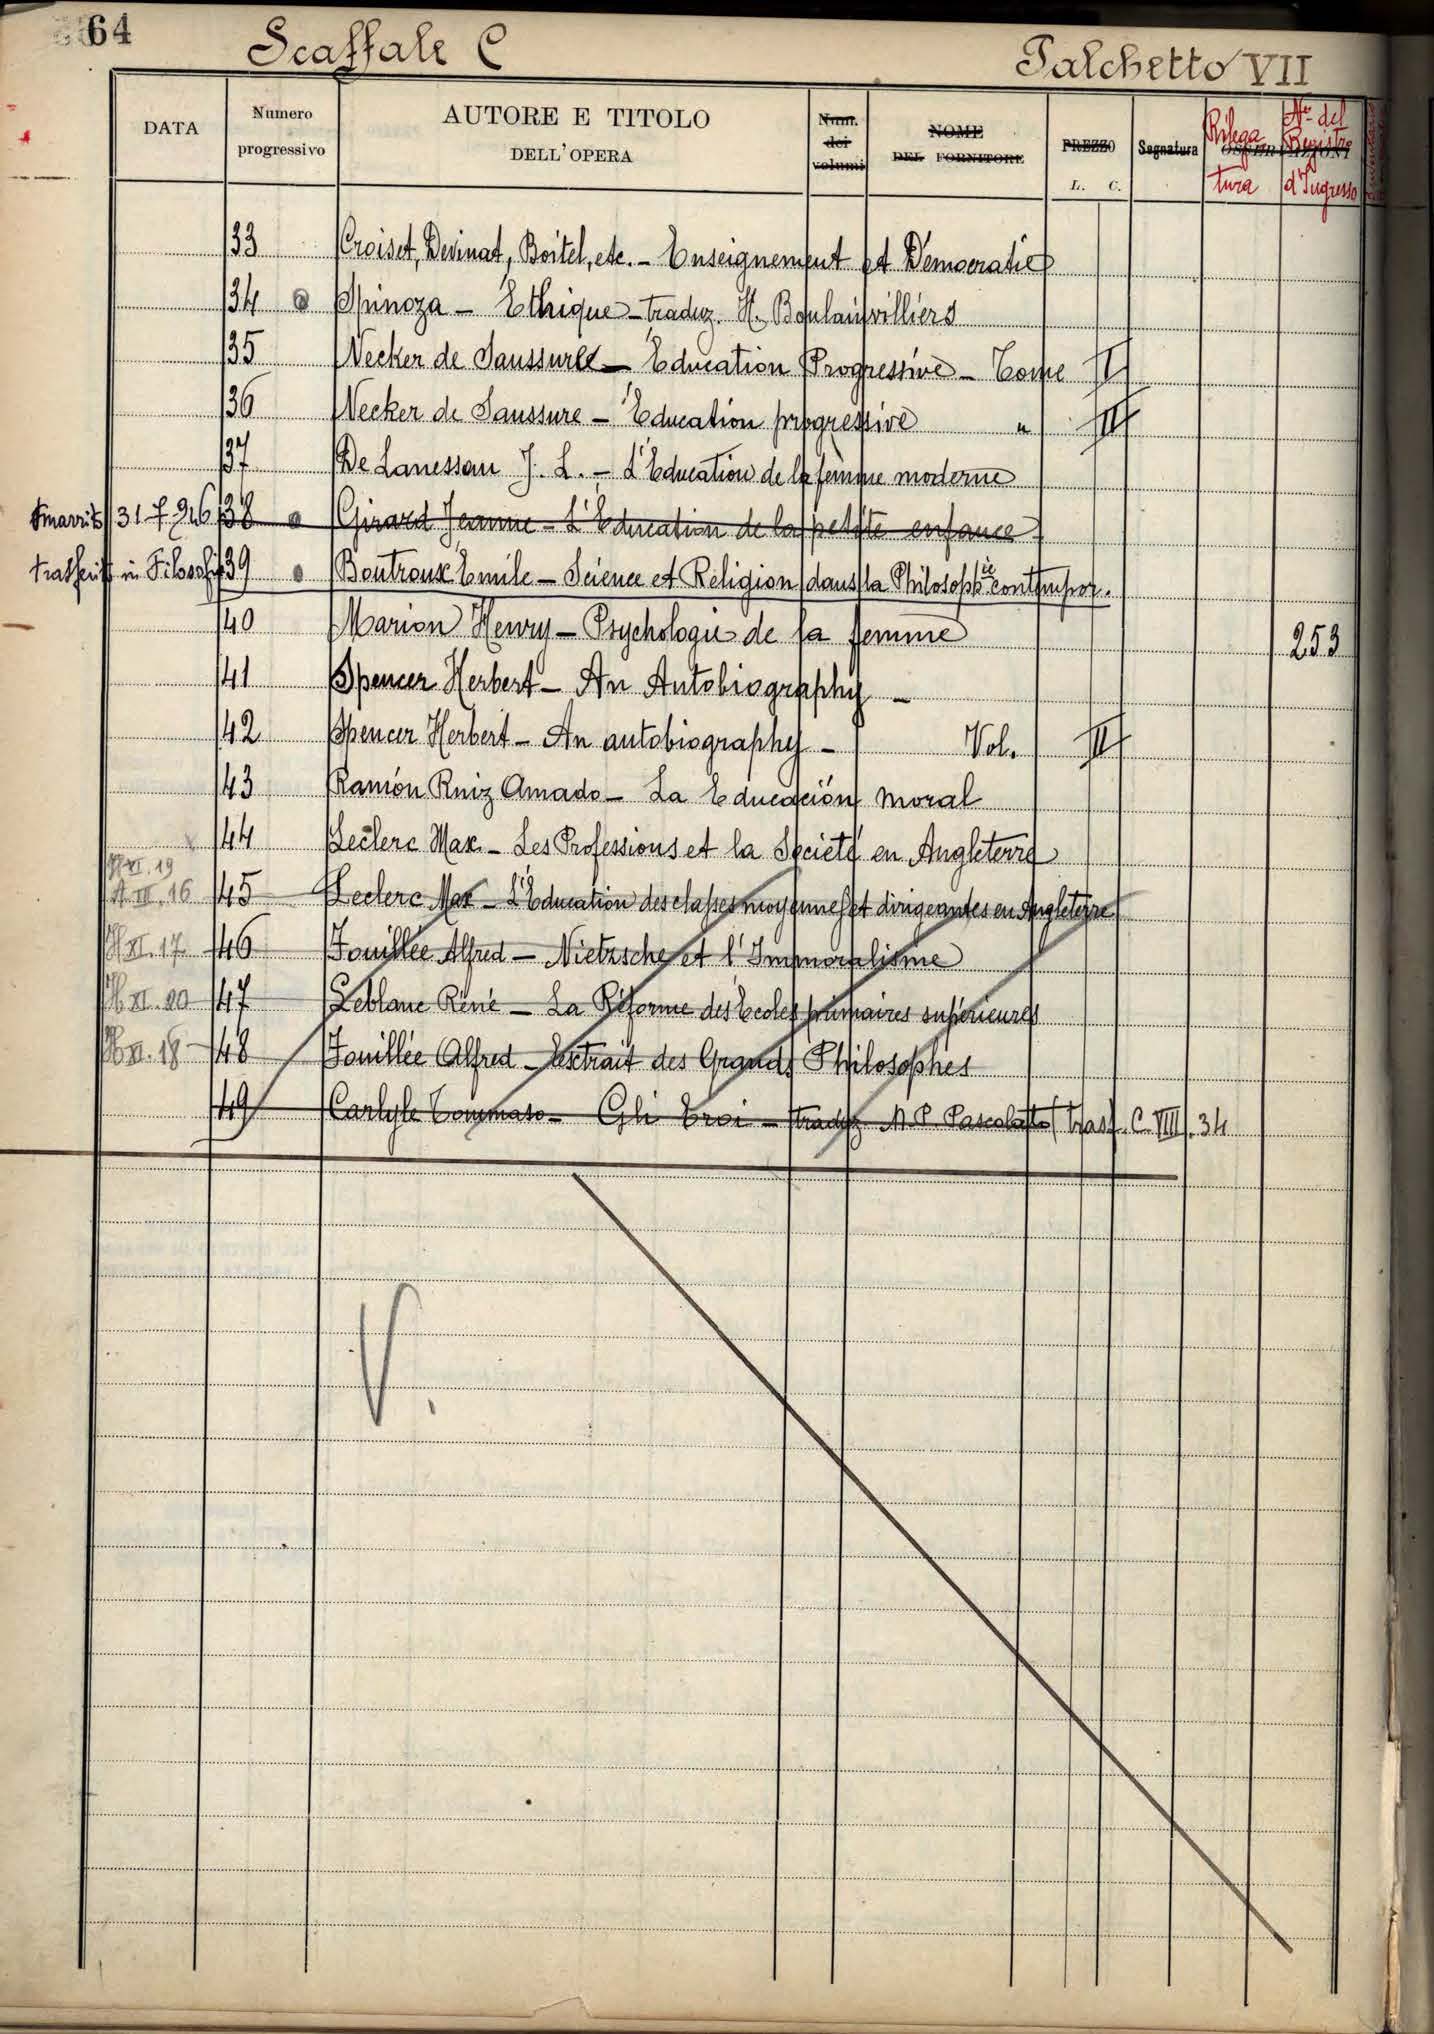 64
Scaffale C
Palchetto VII
DATA
Numero progressivo
AUTORE E TITOLO
DELL'OPERA
Num. dei volumi
NOME
DEL FORNITORE
PREZZO
L. C.
Segnatura
Rilegatura
Nº del Registro d'Ingresso
33 Croiset, Devinat, Boitel, etc. - Enseignement et Démocratie
34 Spinoza - Ethique - traduz. H. Boulainvilliers
35 Necker de Saussure - Éducation Progressive - Tome I
36 Necker de Saussure - Éducation progressive " II
37 De Lanessan J. L. - L'Éducation de la femme moderne
smarrito 31-7-926 38 Girard Jeanne - L'Éducation de la petite enfance
trasferito in Filosofia 39 Boutroux Emile - Science et Religion dans la Philosophie contempor.
40 Marion Henry - Psychologie de la femme 253
41 Spencer Herbert - An Autobiography -
42 Spencer Herbert - An autobiography - Vol. II
43 Ramón Ruiz Amado - La Educación moral
44 Leclerc Max - Les Professions et la Société en Angleterre
H XI. 19
A III. 16 45 Leclerc Max - L'Éducation des classes moyennes et dirigeantes en Angleterre
H XI. 17 46 Fouillée Alfred - Nietzsche et l'Immoralisme
H XI. 20 47 Leblanc Réné - La Réforme des Écoles primaires supérieures
H XI. 18 48 Fouillée Alfred - Extrait des Grands Philosophes
49 Carlyle Tommaso - Gli Eroi - traduz. M. P. Pascolato (trasf. C. VIII. 34
V.